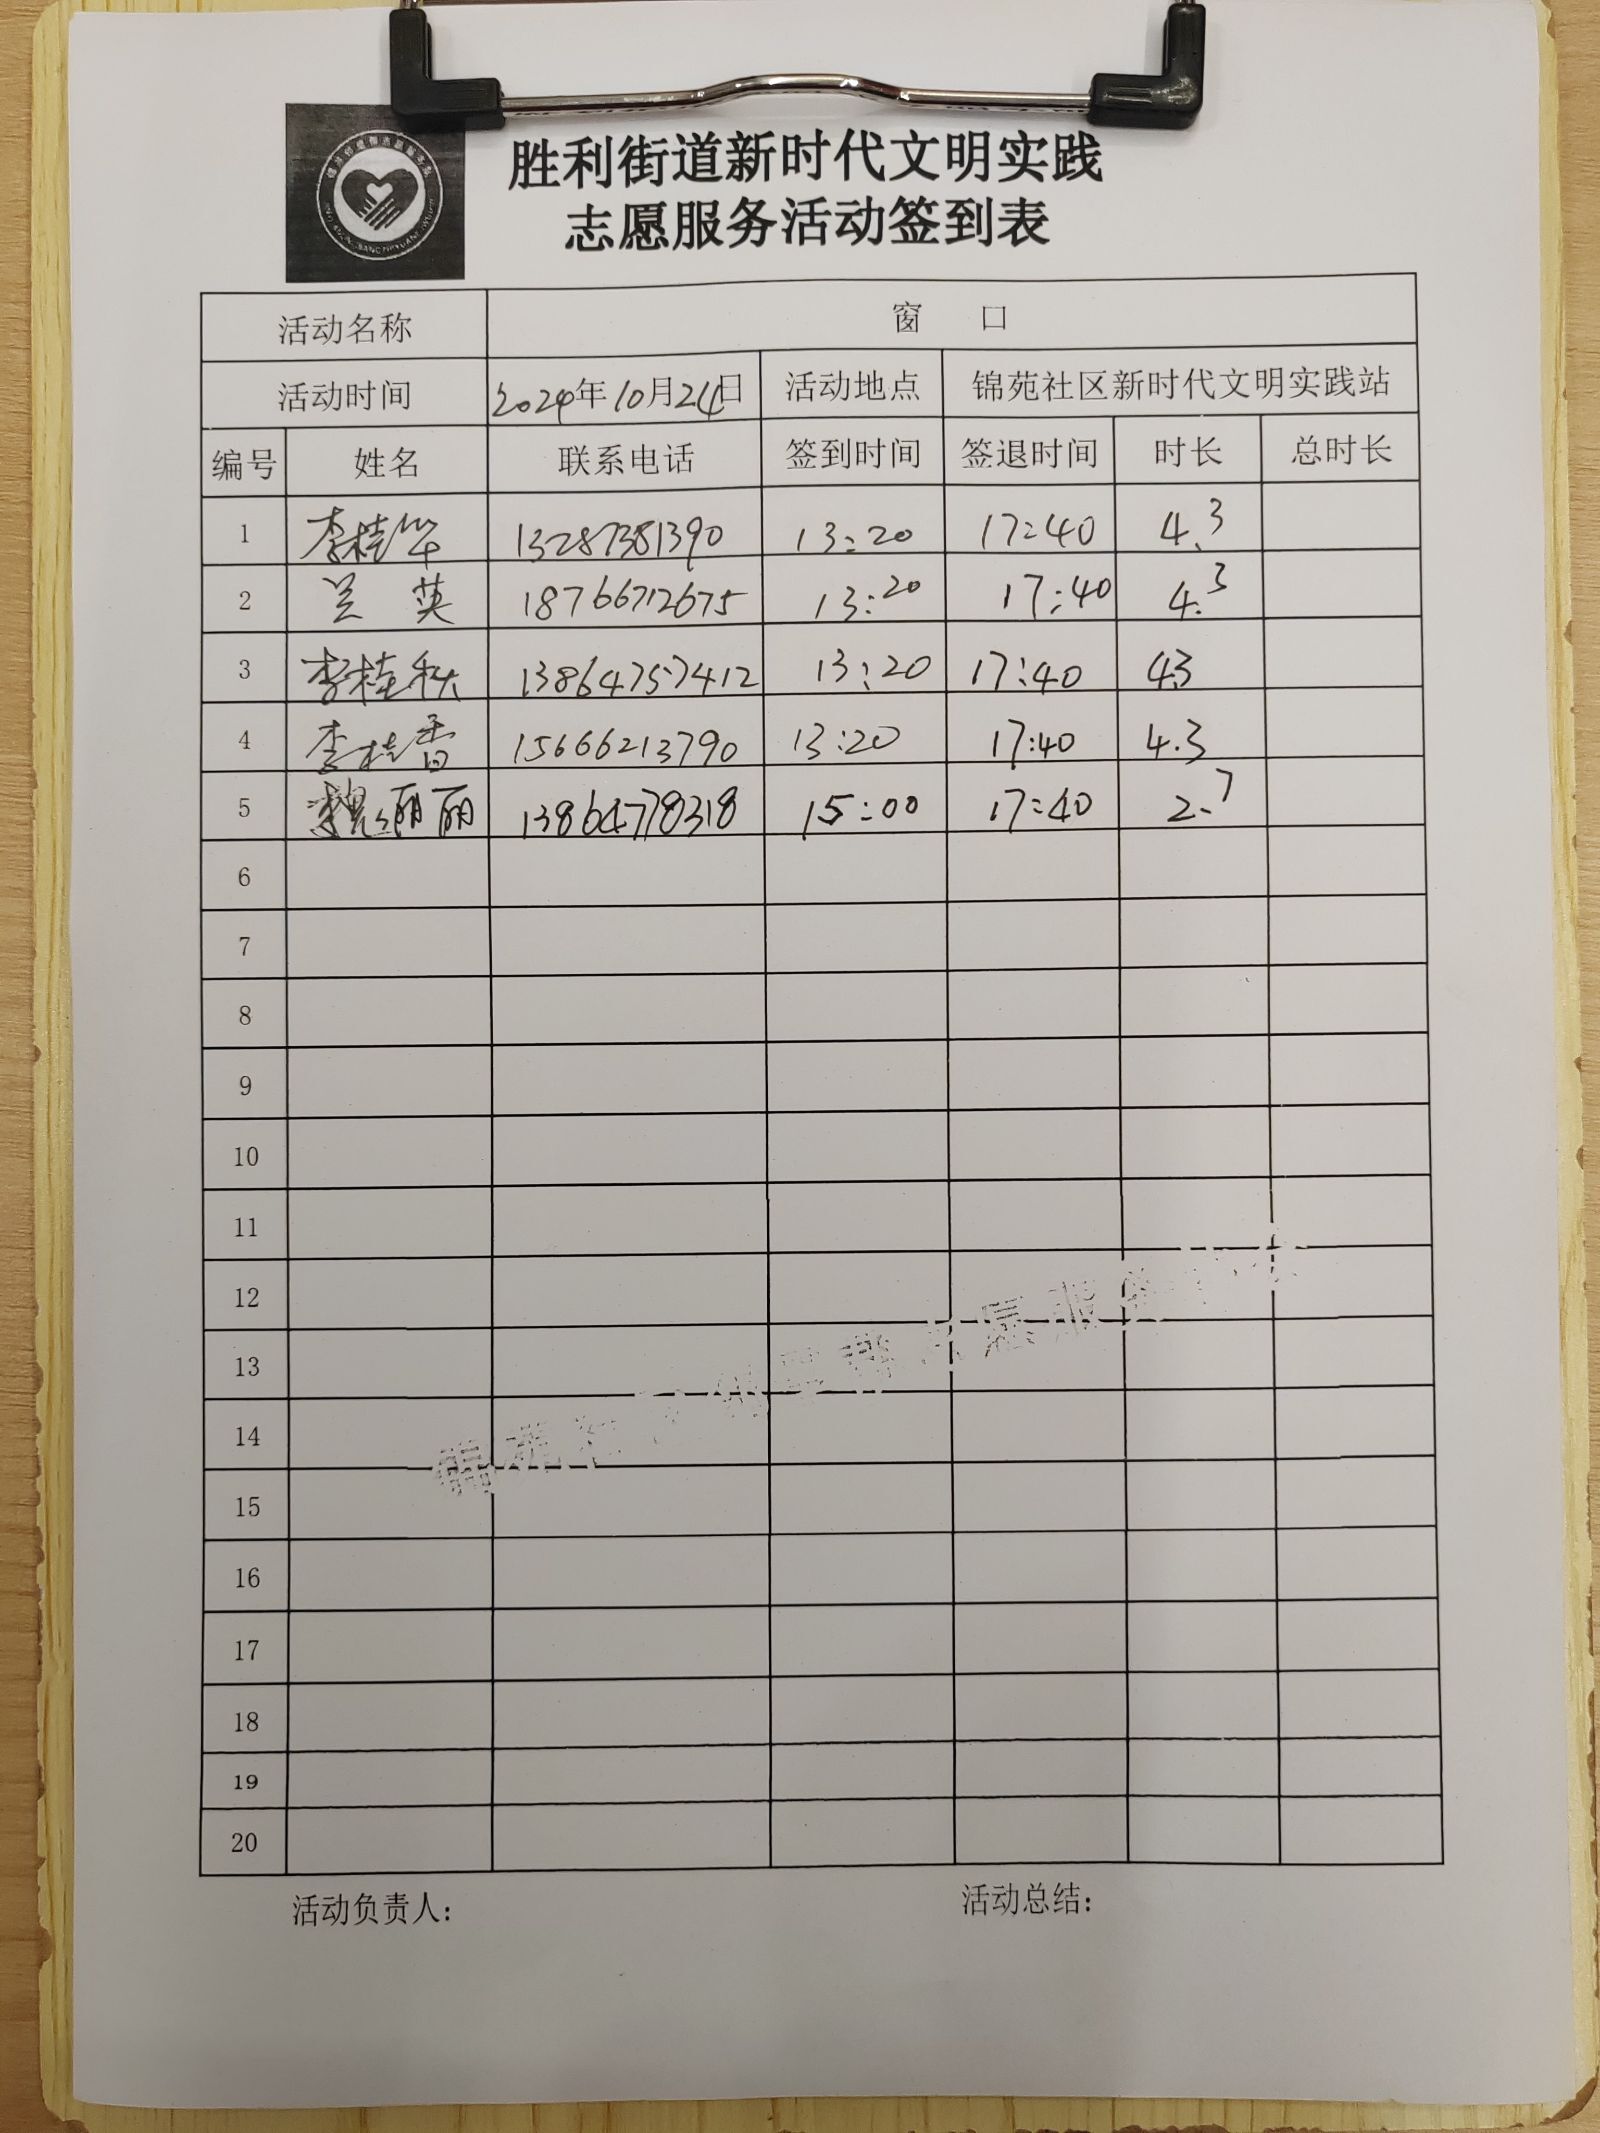 胜利街道新时代文明实践
志愿服务活动签到表
活动名称 窗 口
活动时间 2024年10月24日 活动地点 锦苑社区新时代文明实践站
编号 姓名 联系电话 签到时间 签退时间 时长 总时长
1 李桂华 13287381390 13:20 17:40 4.3
2 兰英 18766712675 13:20 17:40 4.3
3 李桂秋 13864757412 13:20 17:40 4.3
4 李桂香 15666213790 13:20 17:40 4.3
5 魏丽丽 13864778318 15:00 17:40 2.7
6
7
8
9
10
11
12
13
14
15
16
17
18
19
20
活动负责人: 活动总结: